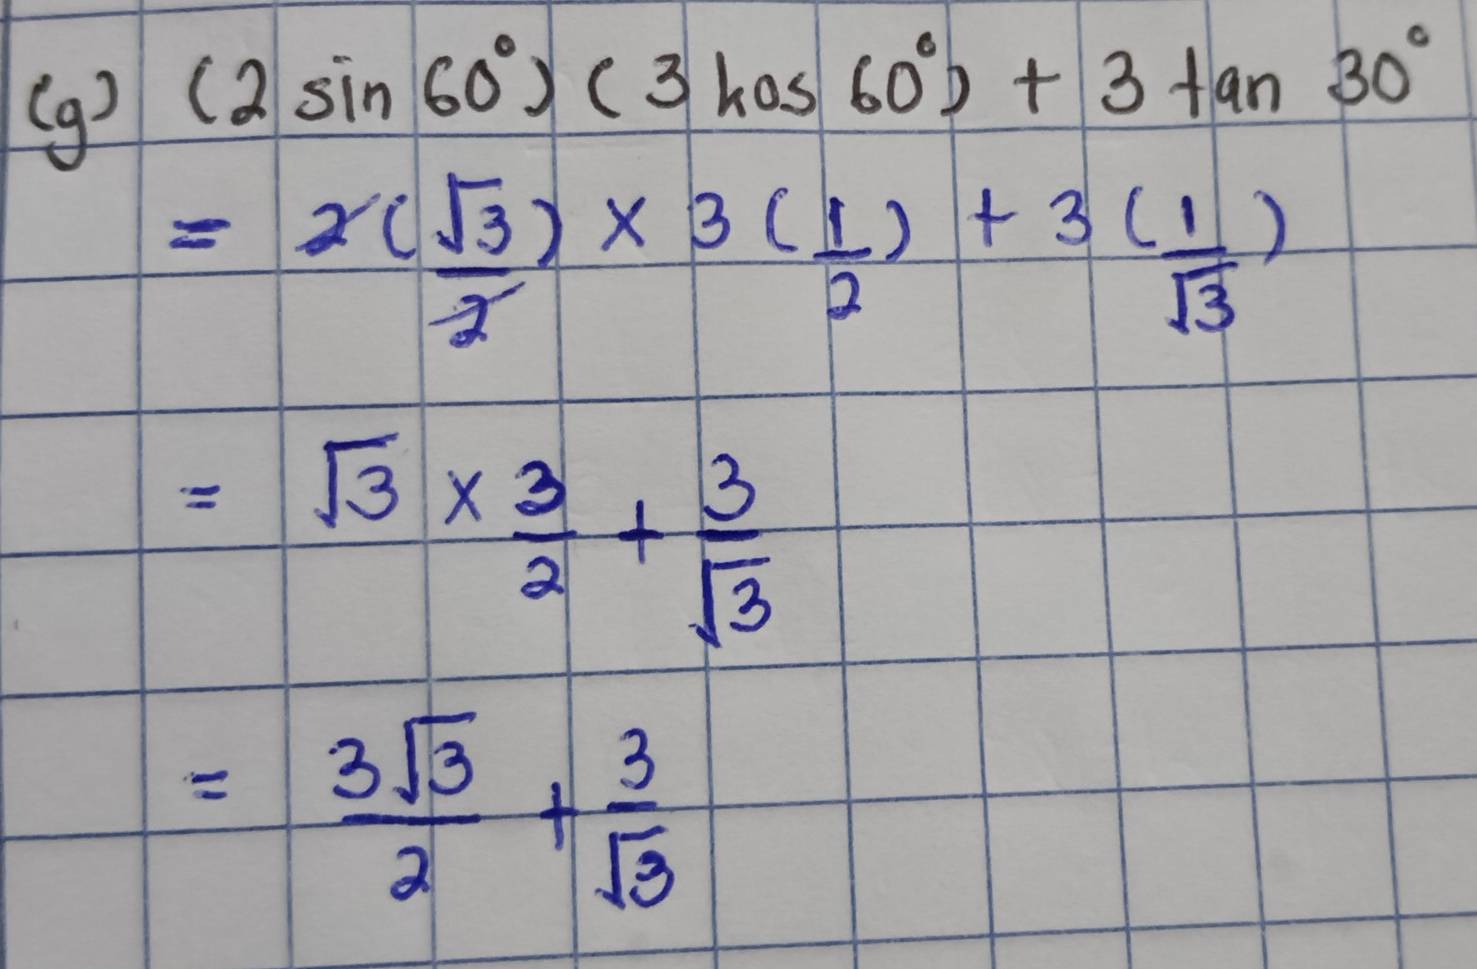 (g) (2 sin 60°) (3 kos 60°) + 3 tan 30°
= 2(√3/2) × 3(1/2) + 3(1/√3)
= √3 × 3/2 + 3/√3
= 3√3/2 + 3/√3